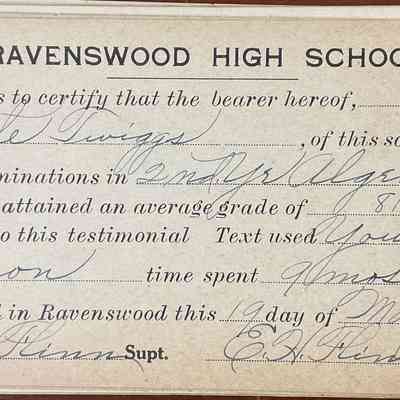 RAVENSWOOD HIGH SCHOO
s to certify that the bearer hereof,
le Twiggs , of this sc
minations in 2nd. Yr Alge
attained an average grade of 8
o this testimonial Text used You
on time spent 9 mos
d in Ravenswood this 19 day of Ma
Flinn Supt. E. H. Flin